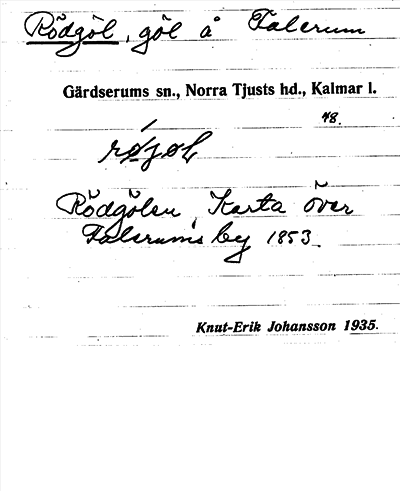 Rödgöl, göl å Falerum
Gärdserums sn., Norra Tjusts hd., Kalmar l.
48.
Rödgölen, Karta över
Falerums by 1853.
Knut-Erik Johansson 1935.